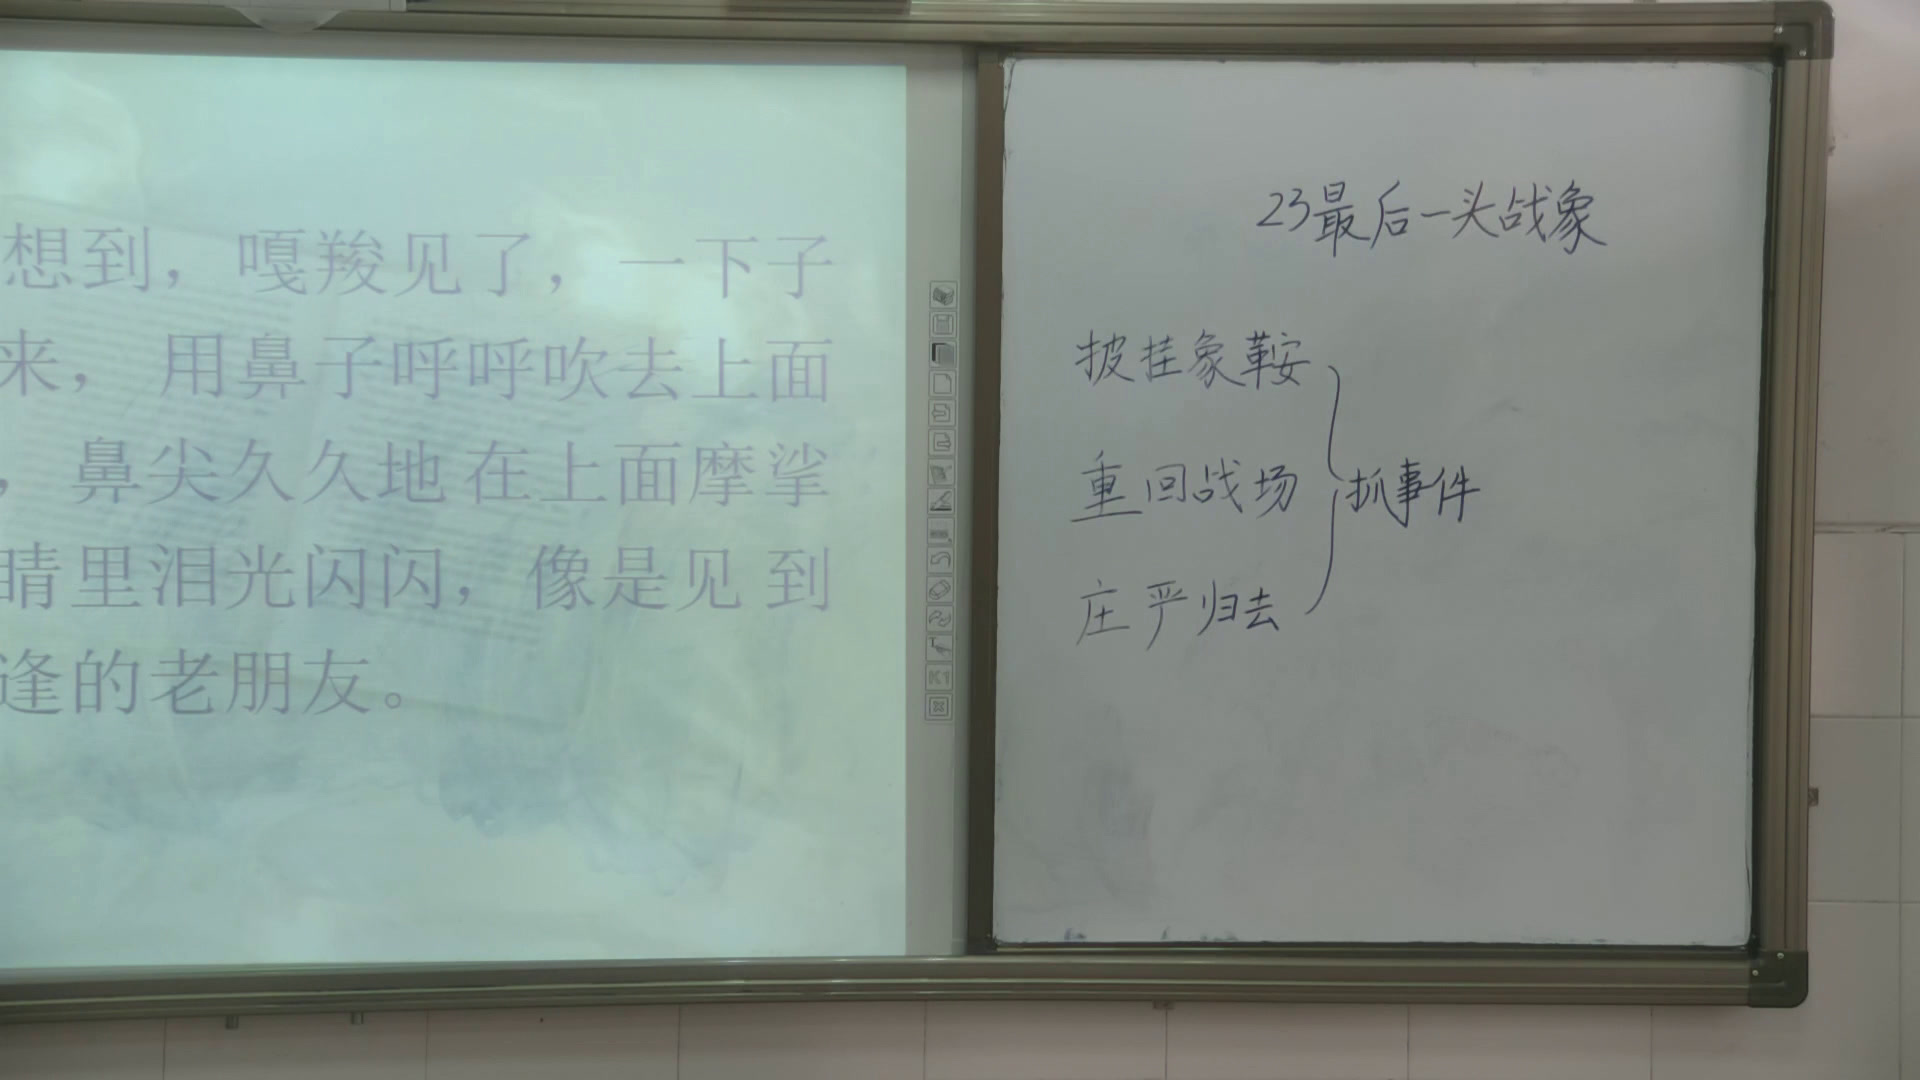 想到，嘎羧见了，一下子
来，用鼻子呼呼吹去上面
，鼻尖久久地在上面摩挲
睛里泪光闪闪，像是见到
逢的老朋友。
K1
23最后一头战象
披挂象鞍
重回战场
抓事件
庄严归去